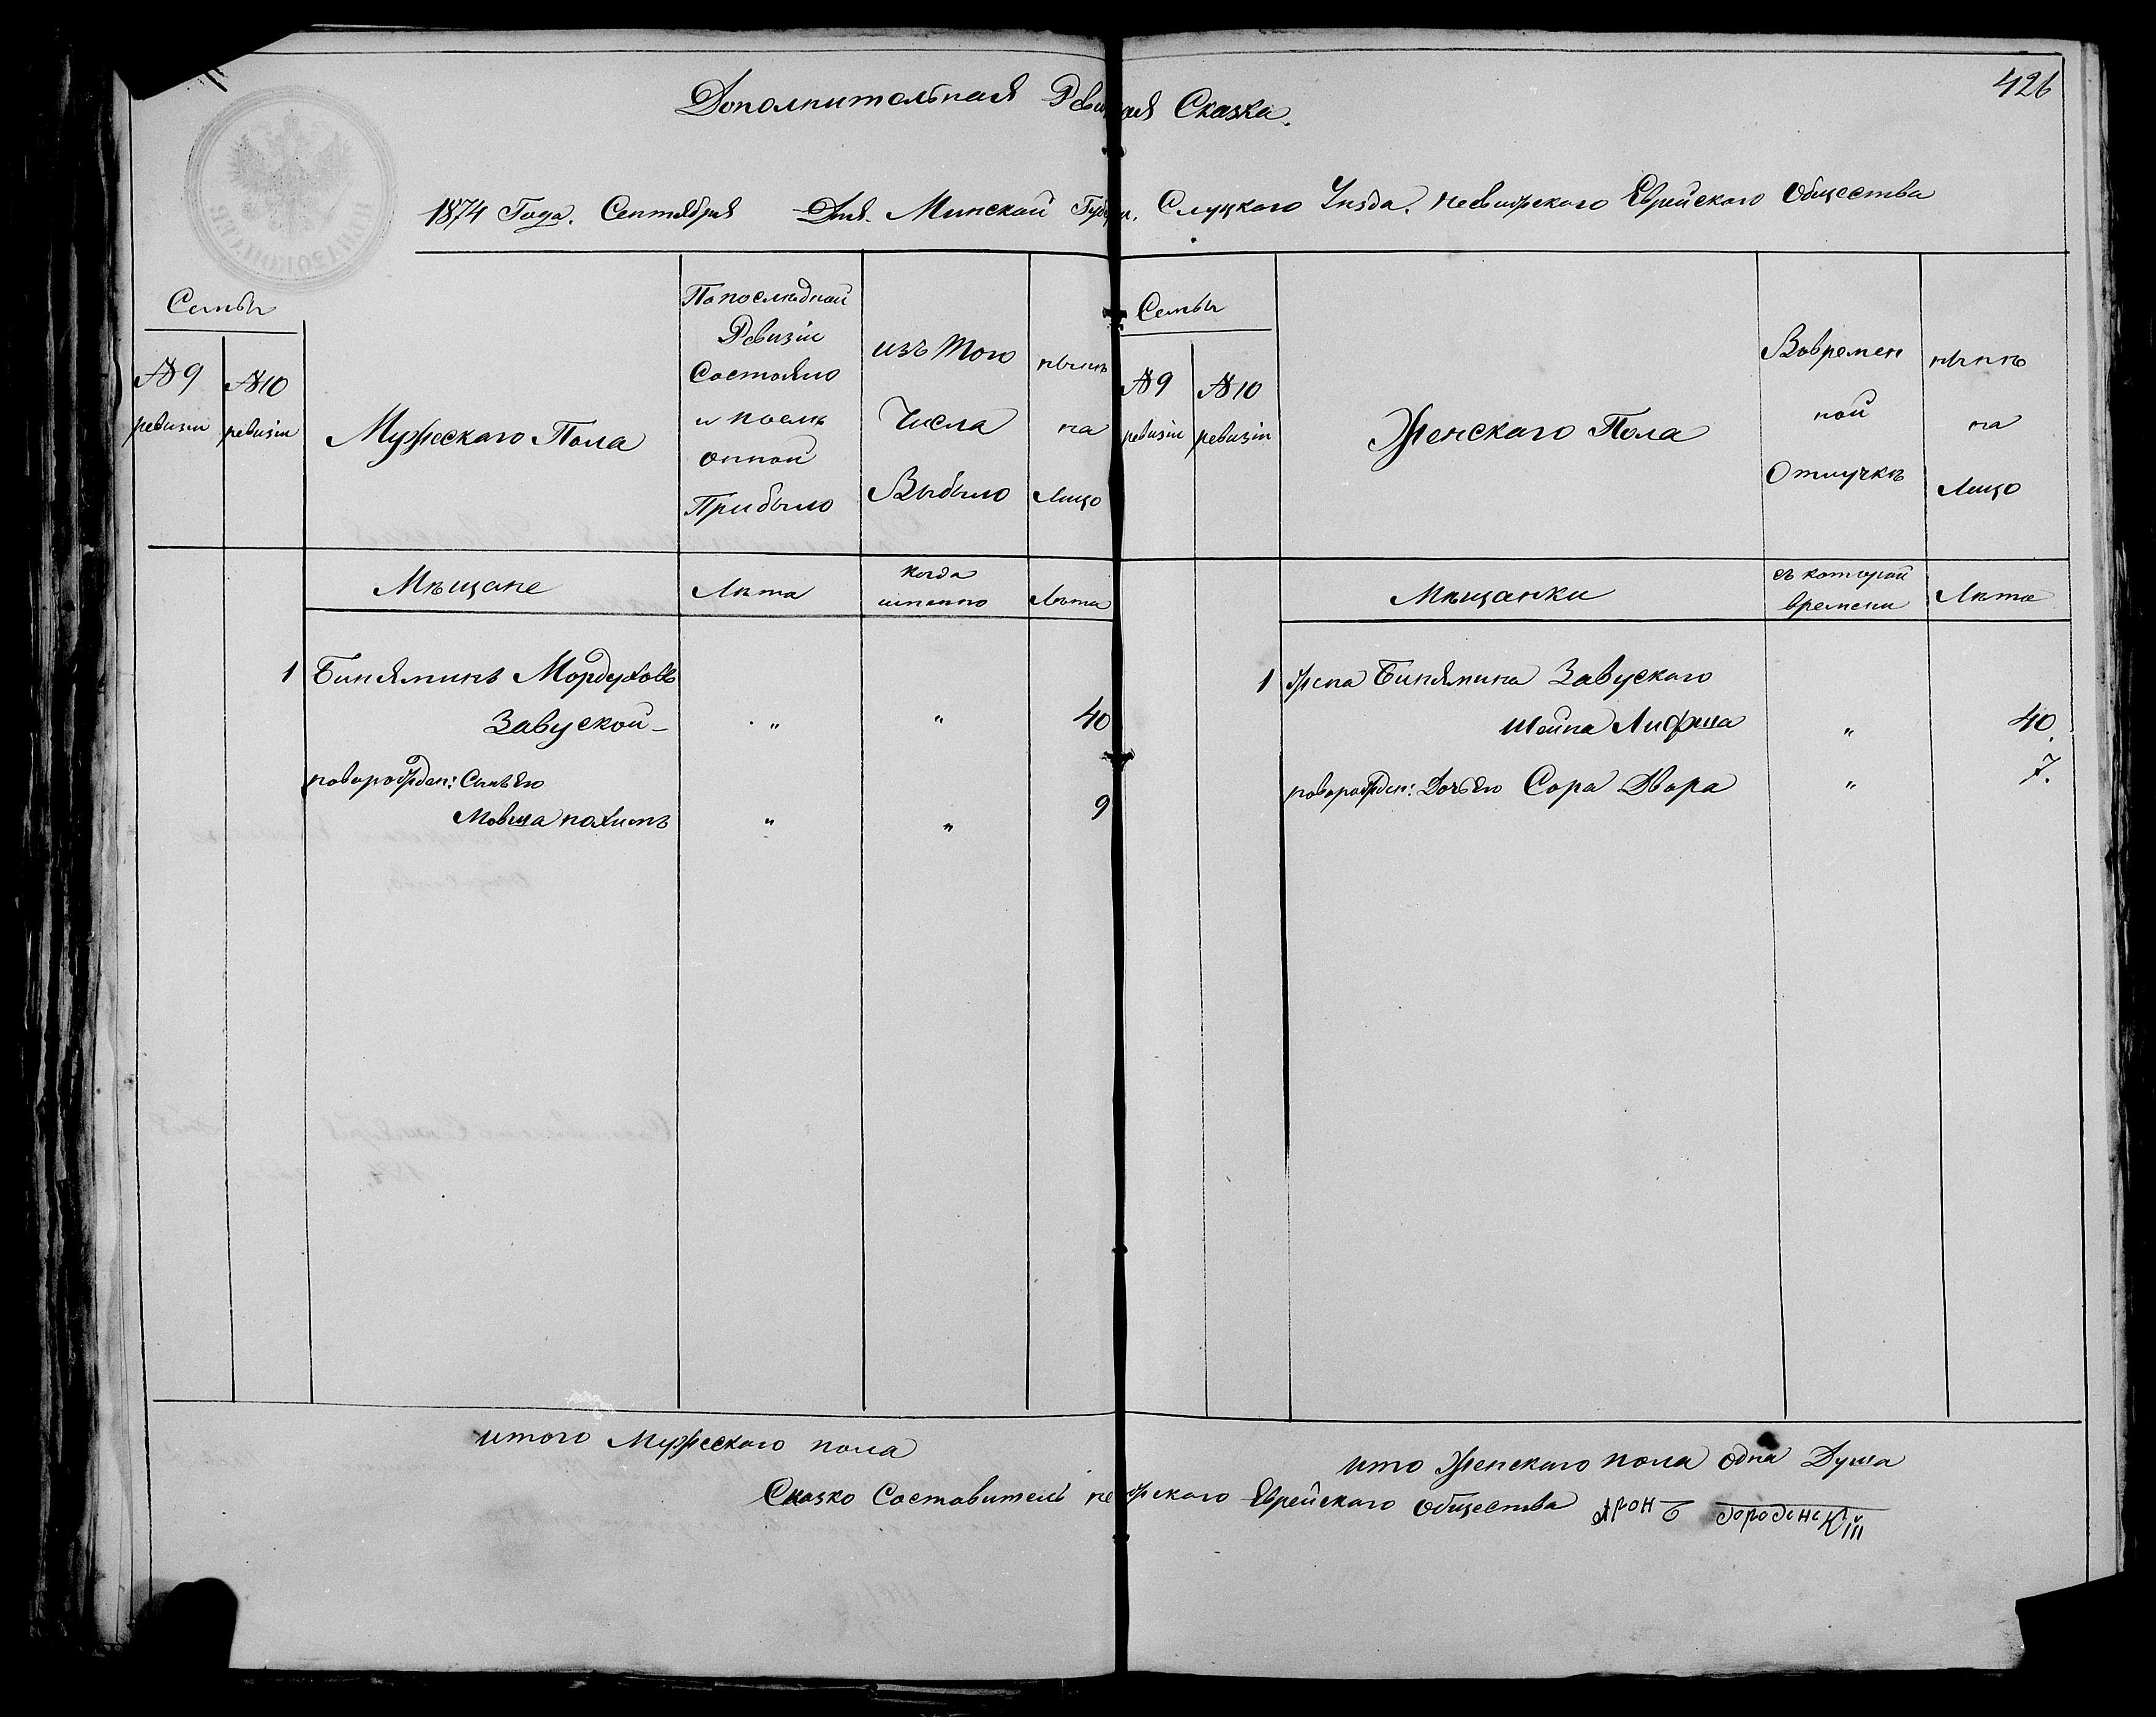 426
Дополнительная Ревизкая Сказка.
1874 Года. Сентября Дня. Минской Губерн. Слуцкого Уѣзда. Несвижского Еврейского Общества
Семьи
№ 9 ревизіи
№ 10 ревизіи
Мужескаго Пола
По последней
Ревизіи
Состояло
и послѣ
онной
Прибыло
изъ Того
Числа
Выбыло
нынѣ
на
Лицо
Семьи
№ 9 ревизіи
№ 10 ревизіи
Женскаго Пола
Вовремен
ной
Отлучкѣ
нынѣ
на
Лицо
Мѣщане
Лѣта
когда
именно
Лѣта
Мѣщанки
съ которой
времени
Лѣта
1 Биняминъ Мордуховъ
Завуской - " " 40
новорожден: Сынъ Его
Мовша Нохимъ " " 9
1 Жена Бинямина Завускаго
Шейна Лифша " 40
новорожден: Дочь Его Сора Двора " 7.
итого Мужескаго пола
ито Женскаго пола одна Душа
Сказко Составитель Несвижского Еврейского Общества Арон Б Городенскій